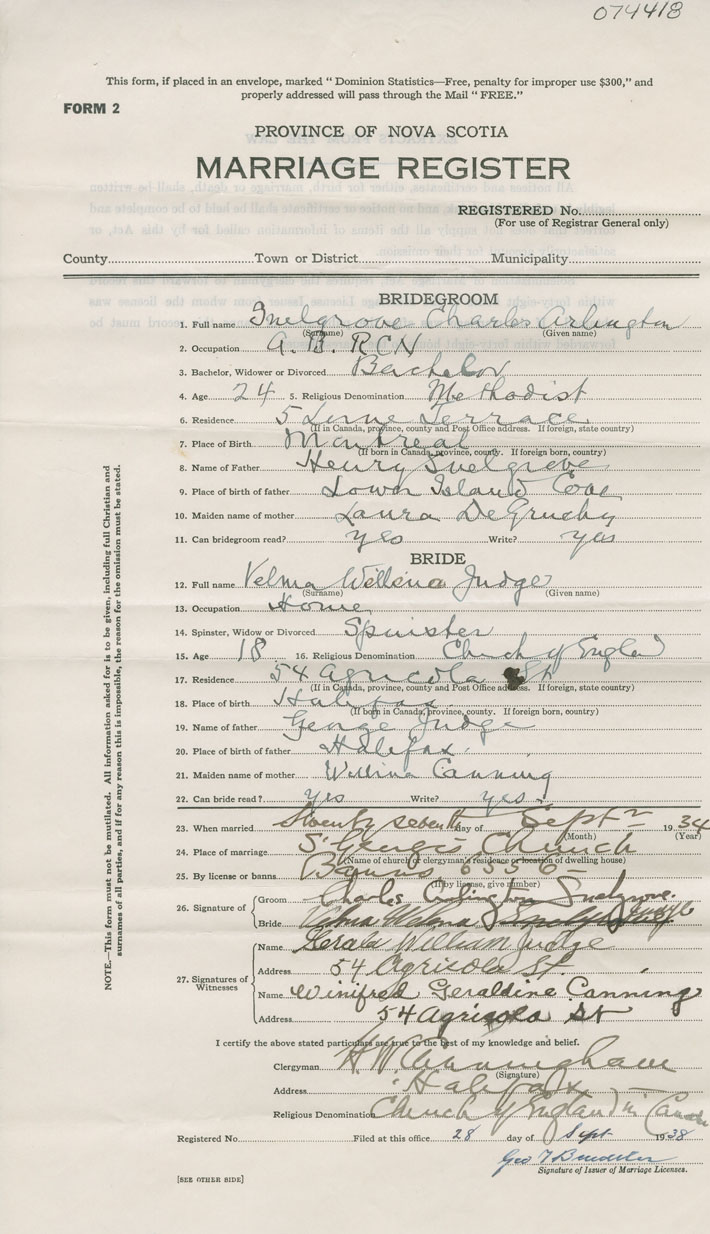 074418
This form, if placed in an envelope, marked " Dominion Statistics—Free, penalty for improper use $300," and
properly addressed will pass through the Mail " FREE."
FORM 2
PROVINCE OF NOVA SCOTIA
MARRIAGE REGISTER
REGISTERED No.
(For use of Registrar General only)
County Town or District Municipality
BRIDEGROOM
1. Full name Snelgrove Charles Arlington
(Surname) (Given name)
2. Occupation A.B. RCN
3. Bachelor, Widower or Divorced Bachelor
4. Age 24 5. Religious Denomination Methodist
6. Residence 5 Lorne Terrace
(If in Canada, province, county and Post Office address. If foreign, state country)
7. Place of Birth Montreal
(If born in Canada, province, county. If foreign born, country)
8. Name of Father Henry Snelgrove
9. Place of birth of father Lower Island Cove
10. Maiden name of mother Laura DeGruchy
11. Can bridegroom read? yes Write? yes
BRIDE
12. Full name Velma Wellena Judge
(Surname) (Given name)
13. Occupation Home
14. Spinster, Widow or Divorced Spinster
15. Age 18 16. Religious Denomination Church of England
17. Residence 54 Agricola St
(If in Canada, province, county and Post Office address. If foreign, state country)
18. Place of birth Halifax
(If born in Canada, province, county. If foreign born, country)
19. Name of father George Judge
20. Place of birth of father Halifax
21. Maiden name of mother Wellina Canning
22. Can bride read? yes Write? yes
23. When married Twenty seventh day of Sept 1934
(Month) (Year)
24. Place of marriage St Georges Church
(Name of church or clergyman's residence or location of dwelling house)
25. By license or banns Banns 6556
(If by license, give number)
26. Signature of Groom Charles Arlington Snelgrove.
Bride Velma Judge
27. Signatures of Witnesses Name Gerald William Judge
Address 54 Agricola St.
Name Winifred Geraldine Canning
Address 54 Agricola St
I certify the above stated particulars are true to the best of my knowledge and belief.
Clergyman H W Cunningham
(Signature)
Address Halifax
Religious Denomination Church of England in Canada
Registered No. Filed at this office 28 day of Sept 1938
Geo
Signature of Issuer of Marriage Licenses.
[SEE OTHER SIDE]
NOTE.—This form must not be mutilated. All information asked for is to be given, including full Christian and
surnames of all parties, and if for any reason this is impossible, the reason for the omission must be stated.